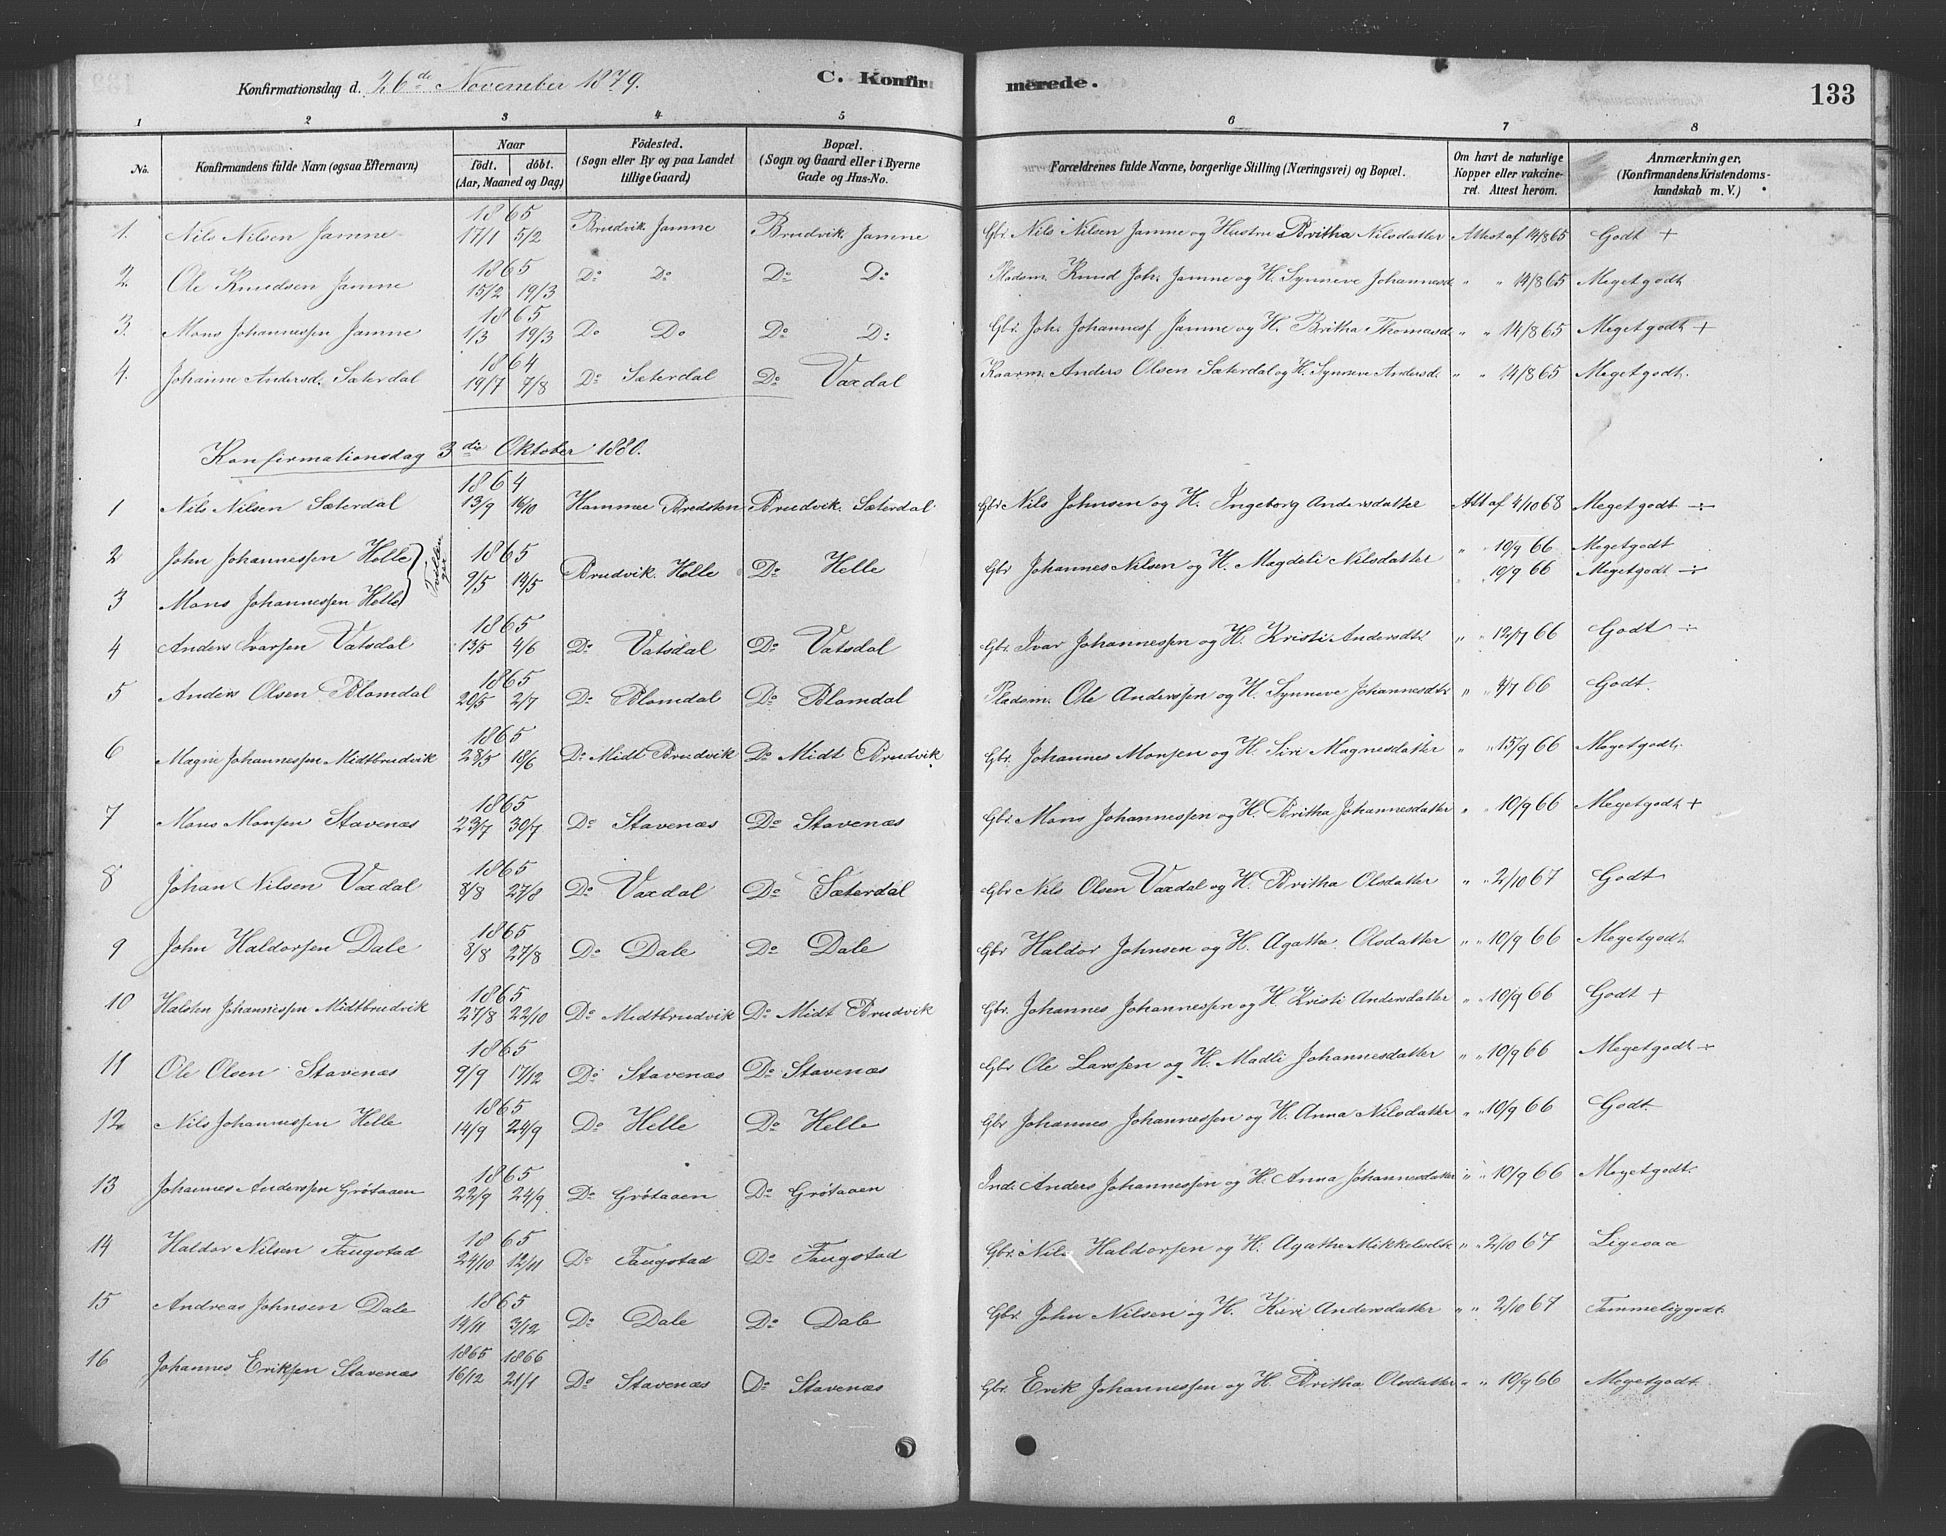 Konfirmationsdag d. 26de November 1879. C. Konfirmerede. 133
1 2 3 4 5 6 7 8
No. Konfirmandens fulde Navn (ogsaa Efternavn) Naar födt. döbt. (Aar, Maaned og Dag) Födested. (Sogn eller By og paa Landet tillige Gaard) Bopæl. (Sogn og Gaard eller i Byerne Gade og Hus-No. Forældrenes fulde Navne, borgerlige Stilling (Næringsvei) og Bopæl. Om havt de naturlige Kopper eller vakcineret. Attest herom. Anmærkninger. (Konfirmandens Kristendomskundskab m. V.)
1. Nils Nilsen Jamne 1865 17/1 5/2 Brudvik Jamne Brudvik Jamne Gbr. Nils Nilsen Jamne og Hustru Britha Nilsdatter Attest af 14/8 65 Godt +
2. Ole Knudsen Jamne 1865 15/2 19/3 Do Do Do Do Pladsm. Knud Joh. Jamne og H. Synneve Johannesd. " " 14/8 65 Meget godt
3. Mons Johannessen Jamne 1865 1/3 19/3 Do Do Do Do Gbr. Joh. Johannesf Jamne og H. Britha Thomasd. " " 14/8 65 Meget godt +
4. Johanne Andersd. Sæterdal 1864 19/7 7/8 Do Sæterdal Do Vaxdal Kaarm. Anders Olsen Sæterdal og H. Synneve Andersd. " " 14/8 65 Meget godt.
Konfirmationsdag 3die Oktober 1880.
1 Nils Nilsen Sæterdal 1864 13/9 16/10 Hammer Bredsten Brudvik. Sæterdal. Gbr Nils Johnsen og H. Ingeborg Andersdatter Att af 4/10 68 Meget godt ÷
2 John Johannessen Helle } Tvillinger 1865 9/5 14/5 Brudvik. Helle Do Helle Gbr Johannes Nilsen og H. Magdeli Nilsdatter " 10/9 66 Meget godt
3 Mons Johannessen Helle " 10/9 66 Meget godt ÷
4 Anders Ivarsen Vatsdal 1865 13/5 4/6 Do Vatsdal Do Vatsdal Gbr. Ivar Johannessen og H. Kristi Andersdt. " " 12/7 66 Godt ÷
5 Anders Olsen Blomdal 1865 20/5 2/7 Do Blomdal Do Blomdal Pladsm. Ole Anderssen og H. Synneve Johannesdtr " " 4/7 66 Godt.
6 Magne Johannessen Midtbrudvik 1865 28/5 18/6 Do Midt Brudvik Do Midt Brudvik Gbr. Johannes Monsen og H. Siri Magnesdatter " " 15/9 66 Meget godt.
7 Mons Monsen Stavenæs 1865 23/7 30/7 Do Stavenæs Do Stavenæs Gbr. Mons Johannessen og H. Britha Johannesdatter " " 10/9 66 Meget godt +
8 Johan Nilsen Vaxdal 1865 8/8 27/8 Do Vaxdal Do Sæterdal Gbr Nils Olsen Vaxdal og H. Britha Olsdatter " " 2/10 67 Godt
9 John Haldorsen Dale 1865 3/8 27/8 Do Dale Do Dale Gbr Haldor Johnsen og H. Agatha Olsdatter " " 10/9 66 Meget godt
10 Halsten Johannessen Midtbrudvik 1865 27/8 22/10 Do Midtbrudvik Do Midt Brudvik Gbr. Johannes Johannessen og H. Kristi Andersdatter " " 10/9 66 Godt +
11 Ole Olsen Stavenæs 1865 9/9 17/12 Do Stavenæs Do Stavenæs Gbr Ole Larssen og H. Madli Johannesdatter " " 10/9 66 Meget godt ÷
12. Nils Johannessen Helle 1865 14/9 24/9 Do Helle Do Helle Gbr Johannes Johannessen og H. Anna Nilsdatter " " 10/9 66 Godt
13 Johannes Anderssen Grötaaen 1865 22/9 24/9 Do Grötaaen Do Grötaaen Ind. Anders Johannessen og H. Anna Johannesdatter " " 10/9 66 Meget godt.
14 Haldor Nilsen Faugstad 1865 24/10 12/11 Do Faugstad Do Faugstad Gbr. Nils Haldorsen og H. Agathe Mikkelsdtr " " 2/10 67 Ligesaa
15 Andreas Johnsen Dale 1865 14/11 3/12 Do Dale Do Dale Gbr. John Nilsen og H. Kari Andersdatter " " 2/10 67 Temmelig godt.
16 Johannes Eriksen Stavenæs 1865 16/12 1866 21/1 Do Stavenæs Do Stavenæs Gbr. Erik Johannessen og H. Britha Olsdatter " " 10/9 66 Meget godt.